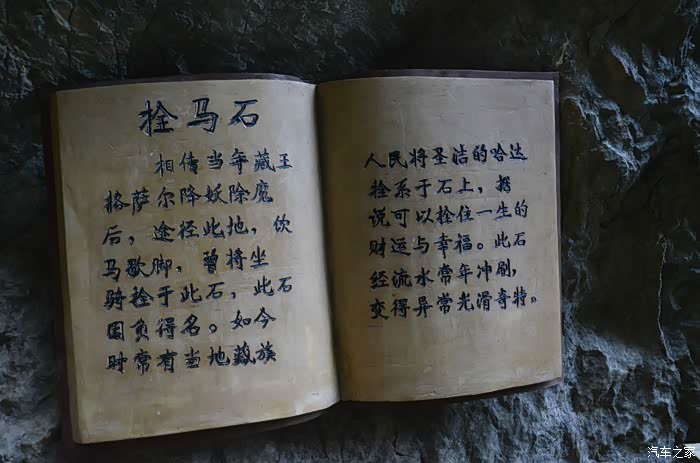 拴马石
相传当年藏王
格萨尔降妖除魔
后，途径此地，饮
马歇脚，曾将坐
骑拴于此石，此石
因负得名。如今
时常有当地藏族
人民将圣洁的哈达
拴系于石上，据
说可以拴住一生的
财运与幸福。此石
经流水常年冲刷，
变得异常光滑奇特。
汽车之家